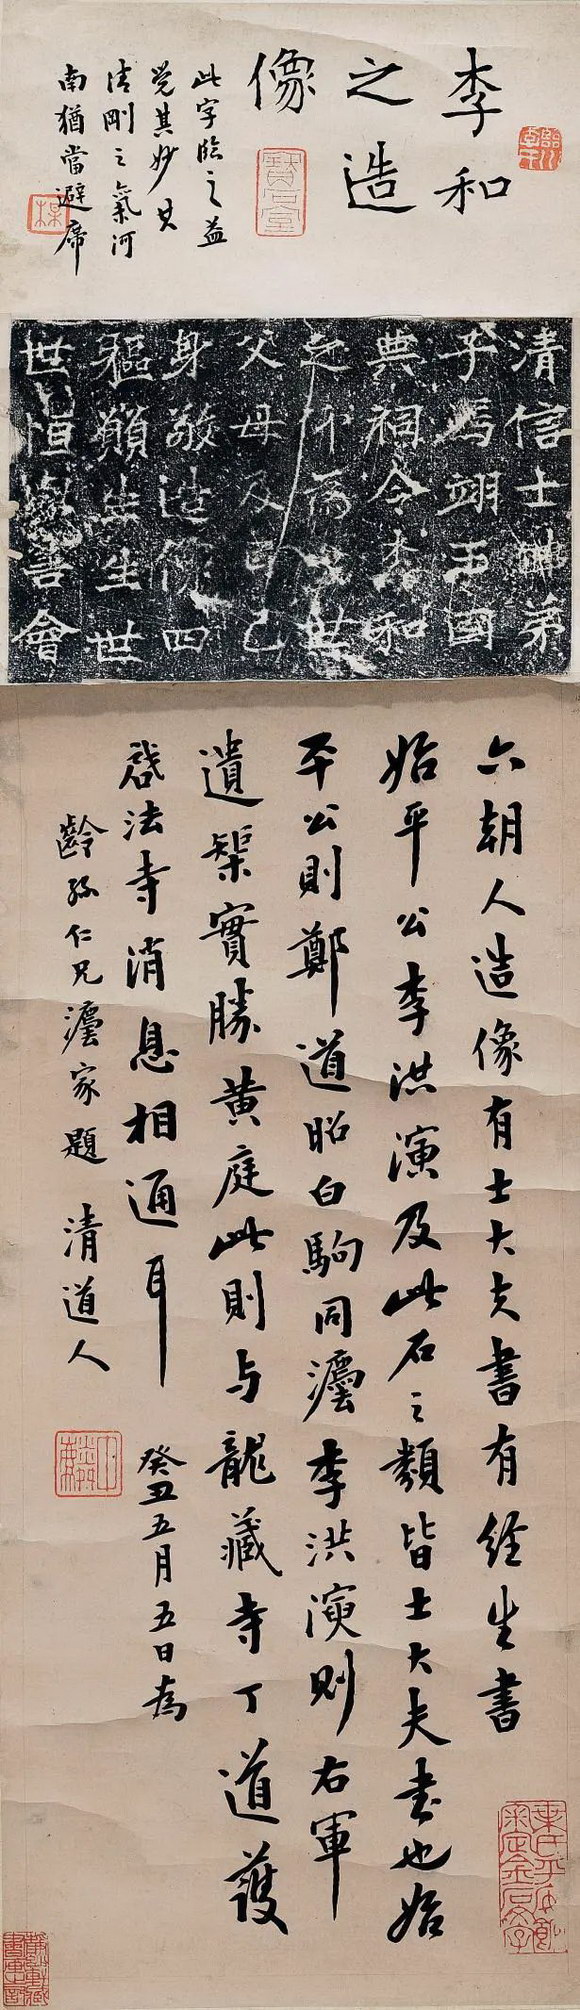 李和
之造
像
此字临之益
觉其妙其
清刚之氣河
南猶當避席
清信士佛弟
子馮翊王國
典祠令李和
之仰為亡世
父母及自己
身敬造像四
軀願生生世
世恒與善會
六朝人造像有士大夫書有经生書
始平公李洪演及此石之類皆士大夫書也始
平公則鄭道昭白駒同瀍李洪演則右軍
遺榘實勝黄庭此則与龍藏寺丁道護
啟法寺消息相通耳
癸丑五月五日為
齡孫仁兄瀍家題 清道人
寶石堂